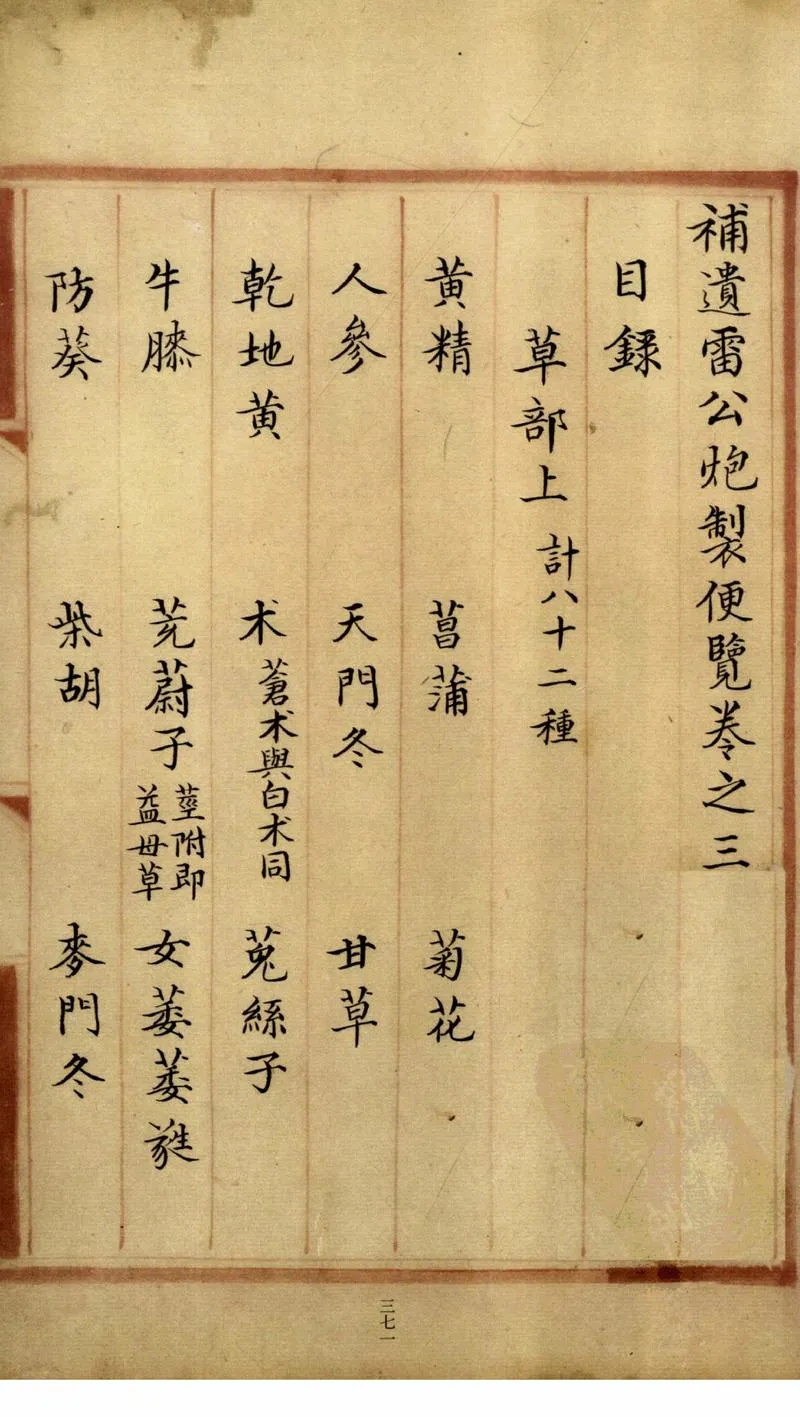 補遺雷公炮製便覽卷之三
目錄
草部上 計八十二種
黃精 菖蒲 菊花
人參 天門冬 甘草
乾地黃 术 蒼术與白术同 菟絲子
牛膝 茺蔚子 莖附即益母草 女萎萎蕤
防葵 柴胡 麥門冬
三七一